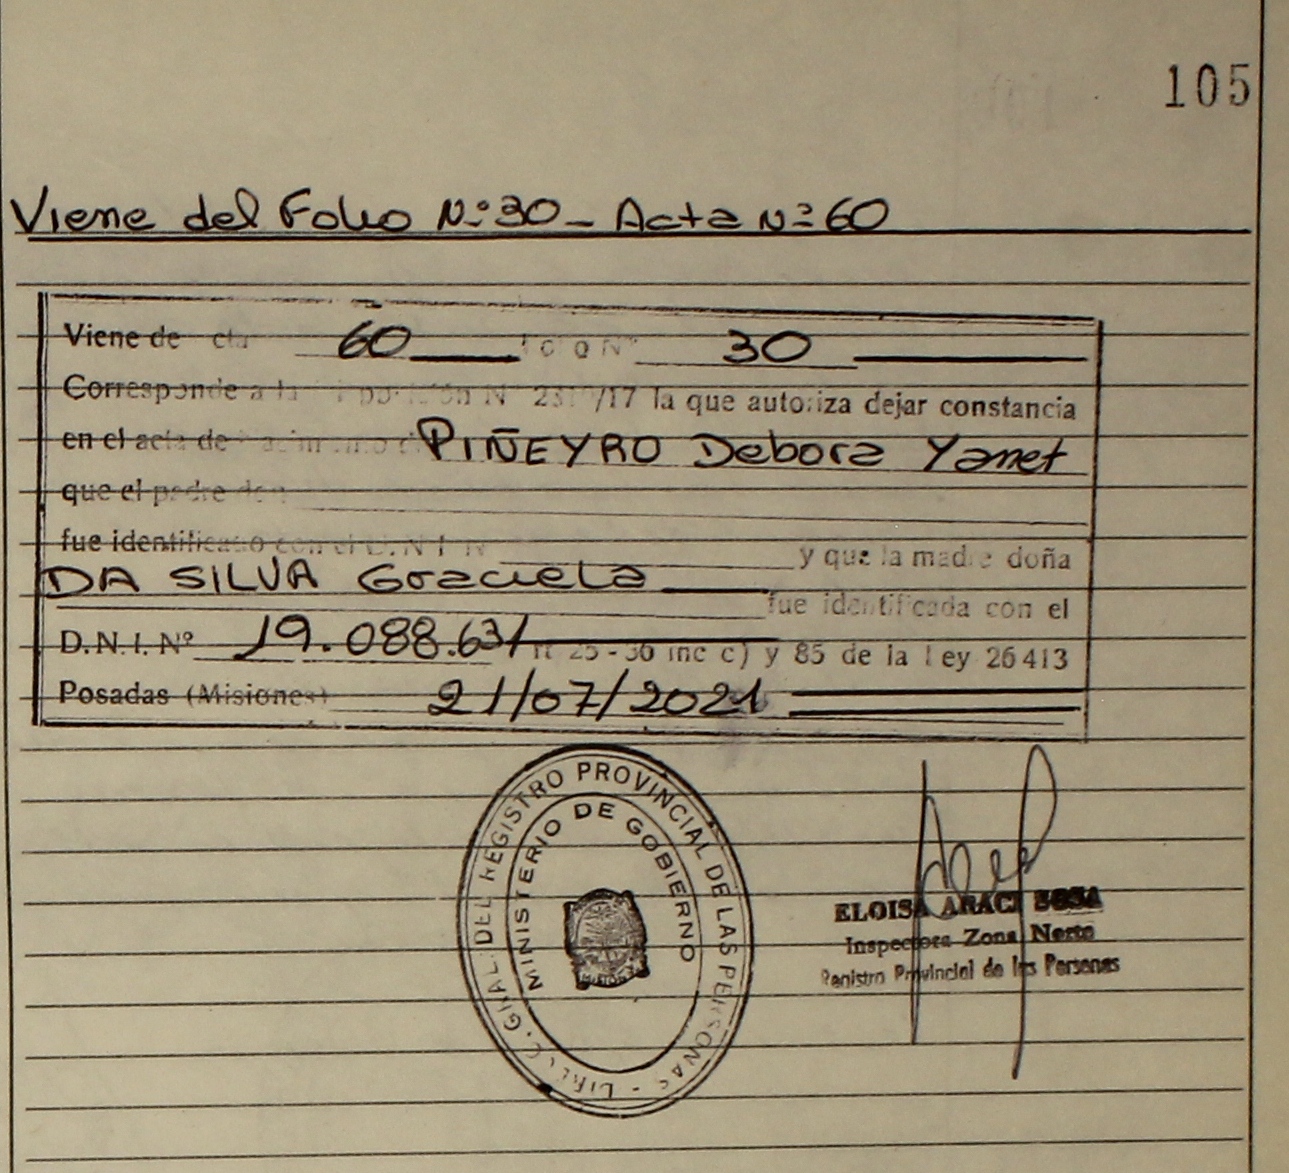 105
Viene del Folio N:º 30 - Acta Nº 60
Viene de cta 60 Folio Nº 30
Corresponde a la Disposición Nº /17 la que autoriza dejar constancia
en el acta de Nacimiento de PIÑEYRO Debora Yanet
que el padre don
fue identificado con el D.N.I. Nº y que la madre doña
DA SILVA Graciela fue identificada con el
D.N.I. Nº 19.088.631 rt 25 - 36 inc c) y 85 de la Ley 26413
Posadas (Misiones) 21/07/2021
DIREC. GRAL. DEL REGISTRO PROVINCIAL DE LAS PERSONAS -
MINISTERIO DE GOBIERNO
ELOISA ARACI SOSA
Inspectora Zona Norte
Registro Provincial de las Personas